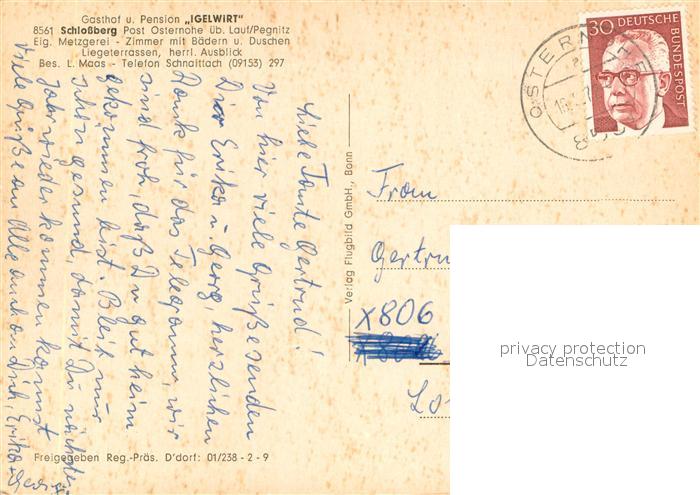 Gasthof u. Pension „IGELWIRT"
8561 Schloßberg Post Osternohe üb. Lauf/Pegnitz
Eig. Metzgerei - Zimmer mit Bädern u. Duschen
Liegeterrassen, herrl. Ausblick
Bes. L. Maas - Telefon Schnaittach (09153) 297
Liebe Tante Gertrud!
Von hier viele Grüße senden
Dir Erika u. Georg, herzlichen
Dank für das Telegramm, wir
sind froh, daß Du gut heim
gekommen bist. Bleib nur
schön gesund, damit Du nächstes
Jahr wieder kommen kannst
Viele Grüße an Alle auch an Dich, Erika +
Freigegeben Reg.-Präs. D'dorf: 01/238 - 2 - 9
Verlag Flugbild GmbH., Bonn
30 DEUTSCHE
BUNDESPOST
OSTERNOHE
Frau
Gertru
X806
privacy protection
Datenschutz